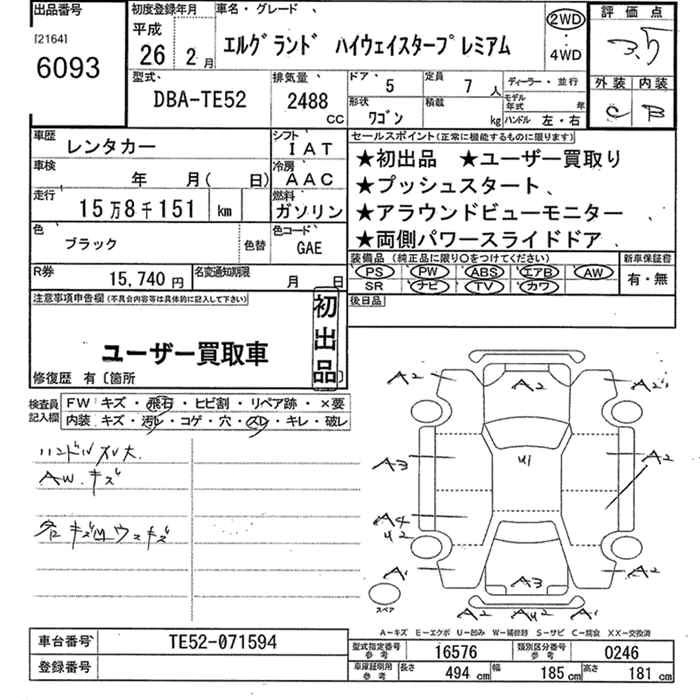 出品番号 初度登録年月 車名・グレード 評価点
[2164] 6093 平成 26 2月 エルグランド ハイウェイスタープレミアム 2WD・4WD 3.5
型式 排気量 ドア 5 定員 7人 ディーラー・並行 外装 内装
DBA-TE52 2488 CC 形状 ワゴン 積載 kg モデル年式 年 ハンドル 左・右 C B
車歴 レンタカー シフト IAT セールスポイント(正常に機能するものに限ります)
車検 年 月( 日) 冷房 AAC ★初出品 ★ユーザー買取り
走行 15万8千151 km 燃料 ガソリン ★プッシュスタート
★アラウンドビューモニター
色 ブラック 色替 色コード GAE ★両側パワースライドドア
装備品 (純正品に限り○をつけてください) 新車保証書
R券 15,740円 名変通知期限 月 日 PS PW ABS エアB AW 有・無
SR ナビ TV カワ
注意事項申告欄(不具合内容等は具体的に記入して下さい) 初出品 後日品
ユーザー買取車
修復歴 有〔箇所 〕
検査員記入欄 FW キズ・飛石・ヒビ割・リペア跡・×要
内装 キズ・汚レ・コゲ・穴・スレ・キレ・破レ
A2 A2 A2
ハンドル
AW.キズ
A3 U1 A2
A4
U2
A1 A2
A3
スペア
A2 AU2 A2
A-キズ E-エクボ U-凹み W-補修跡 S-サビ C-腐食 XX-交換済
車台番号 TE52-071594 型式指定番号 参考 16576 類別区分番号 参考 0246
登録番号 車庫証明用 参考 長さ 494 cm 幅 185 cm 高さ 181 cm